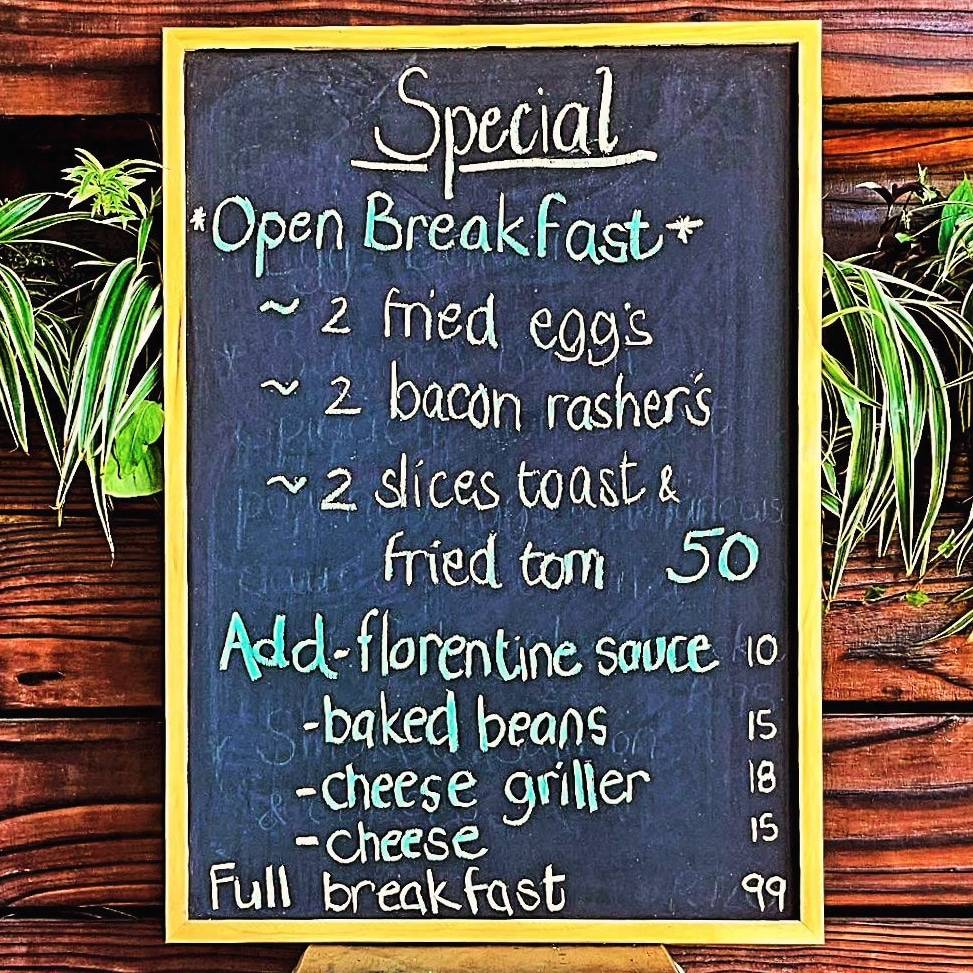 Special
*Open Breakfast*
~ 2 fried egg's
~ 2 bacon rasher's
~ 2 slices toast &
fried tom 50
Add-florentine sauce 10
-baked beans 15
-cheese griller 18
-cheese 15
Full breakfast 99